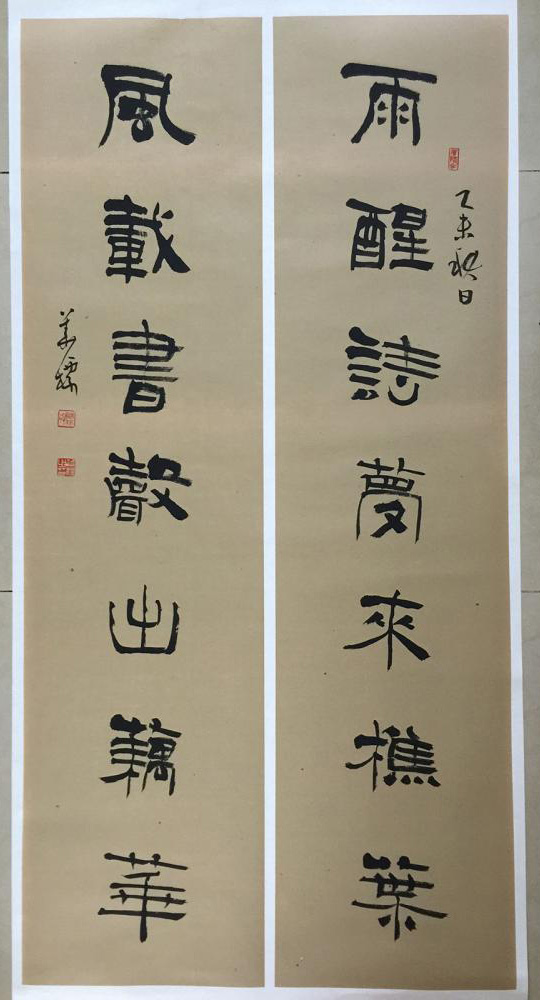 乙未秋日
雨醒詩夢來樵葉
風載書聲出藕華